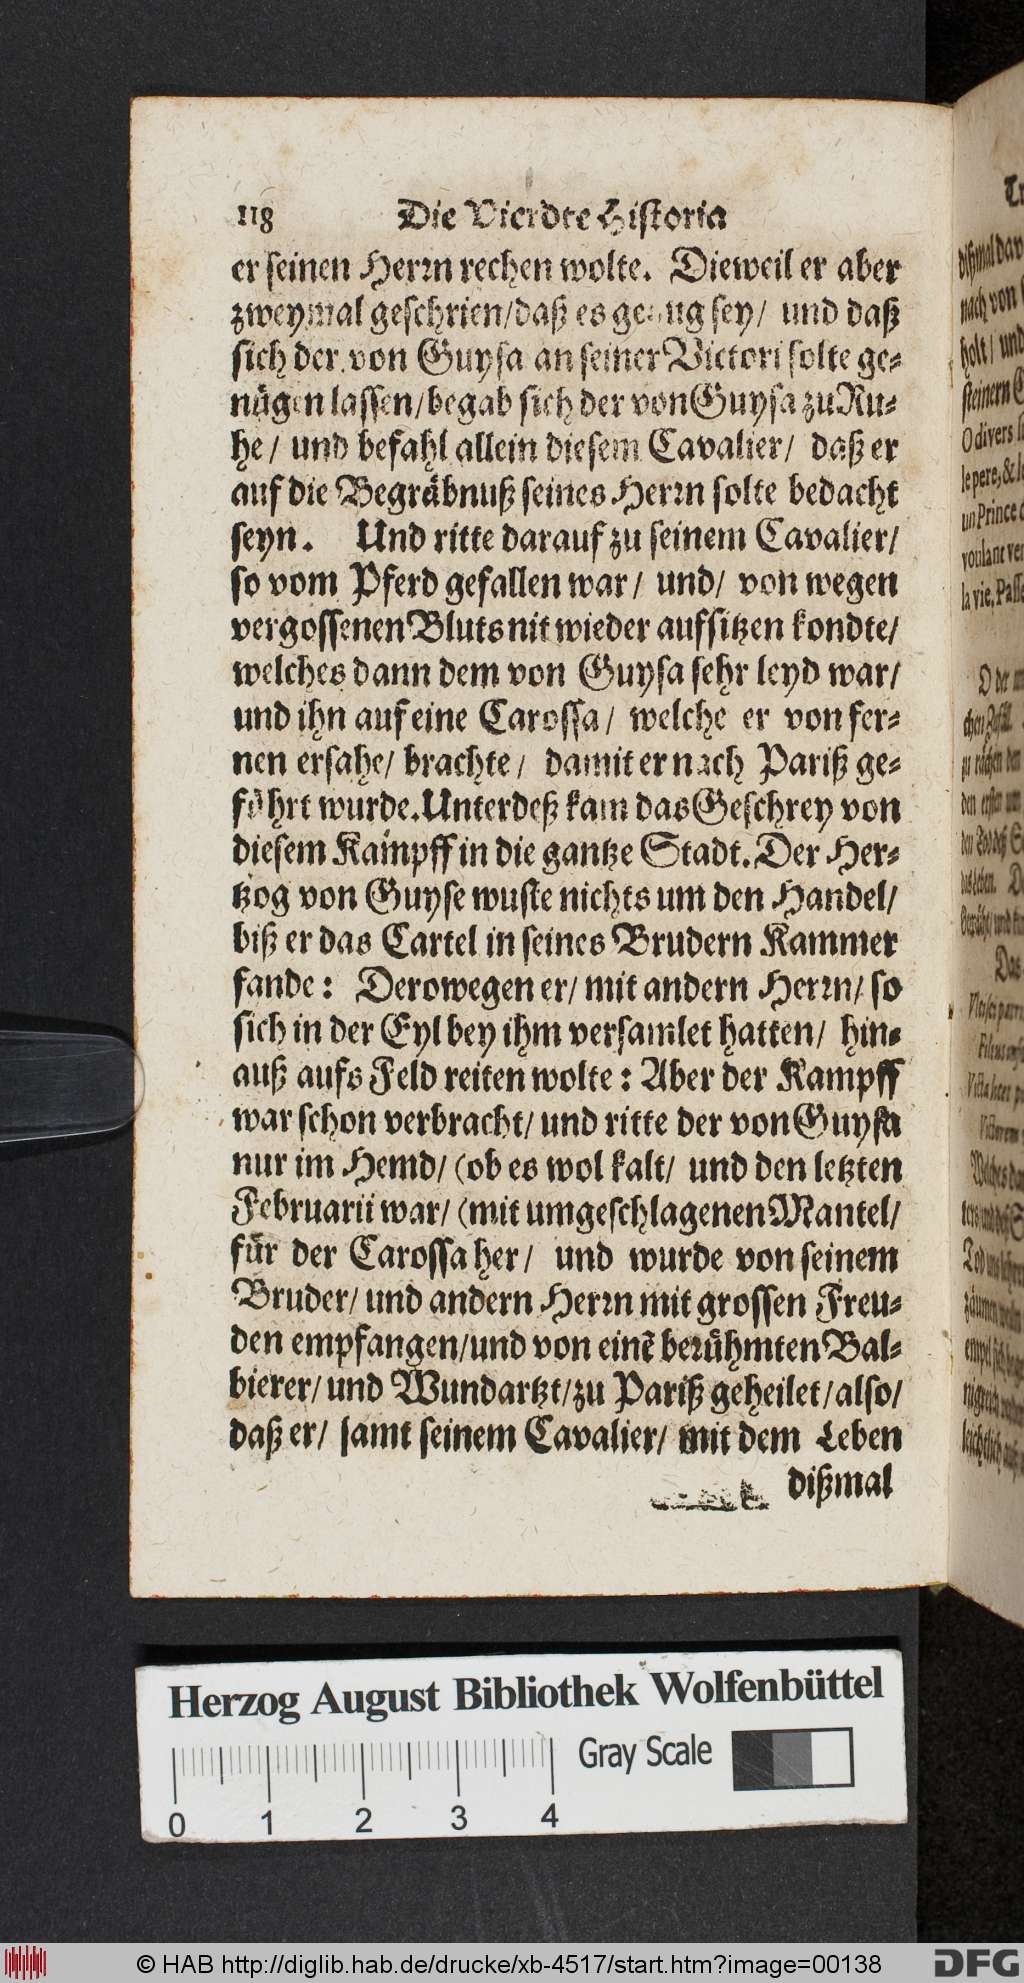 118 Die Vierdte Historia
er seinen Herrn rechen wolte. Dieweil er aber
zweymal geschrien/daß es genug sey/ und daß
sich der von Guysa an seiner Victori solte ge-
nügen lassen/begab sich der von Guysa zu Ru-
he/ und befahl allein diesem Cavalier/ daß er
auf die Begräbnuß seines Herrn solte bedacht
seyn. Und ritte darauf zu seinem Cavalier/
so vom Pferd gefallen war/ und/ von wegen
vergossenen Bluts nit wieder aufsitzen kondte/
welches dann dem von Guysa sehr leyd war/
und ihn auf eine Carossa/ welche er von fer-
nen ersahe/ brachte/ damit er nach Pariß ge-
führt wurde. Unterdeß kam das Geschrey von
diesem Kampff in die gantze Stadt. Der Her-
tzog von Guyse wuste nichts um den Handel/
biß er das Cartel in seines Brudern Kammer
fande: Derowegen er/ mit andern Herrn/ so
sich in der Eyl bey ihm versamlet hatten/ hin-
auß aufs Feld reiten wolte: Aber der Kampff
war schon verbracht/ und ritte der von Guysa
nur im Hemd/ (ob es wol kalt/ und den letzten
Februarii war/ (mit umgeschlagenen Mantel/
für der Carossa her/ und wurde von seinem
Bruder/ und andern Herrn mit grossen Freu-
den empfangen/und von einẽ berühmten Bal-
bierer/ und Wundartzt/zu Pariß geheilet/also/
daß er/ samt seinem Cavalier/ mit dem Leben
dißmal
O divers
le pere, &
un Prince
la vie.
Herzog August Bibliothek Wolfenbüttel
0 1 2 3 4 Gray Scale
© HAB http://diglib.hab.de/drucke/xb-4517/start.htm?image=00138 DFG